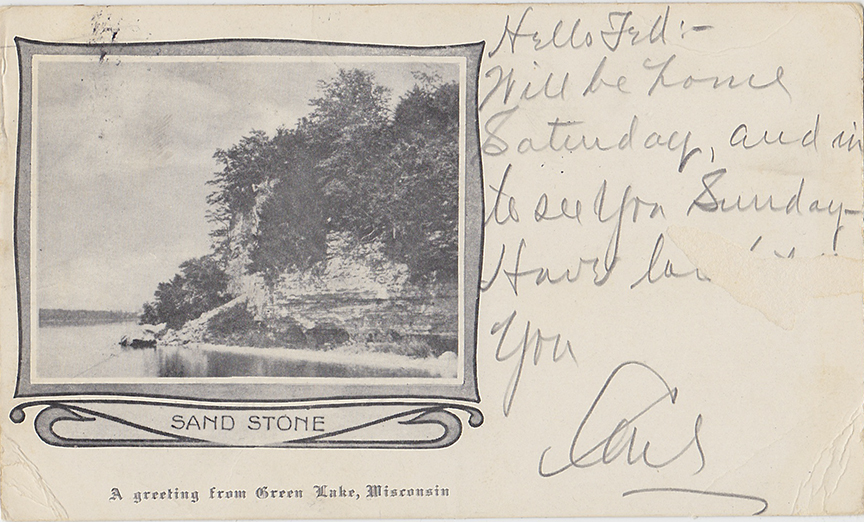 Hello Fell:-
Will be home
Saturday, and in
to see you Sunday-
Have
You
SAND STONE
A greeting from Green Lake, Wisconsin